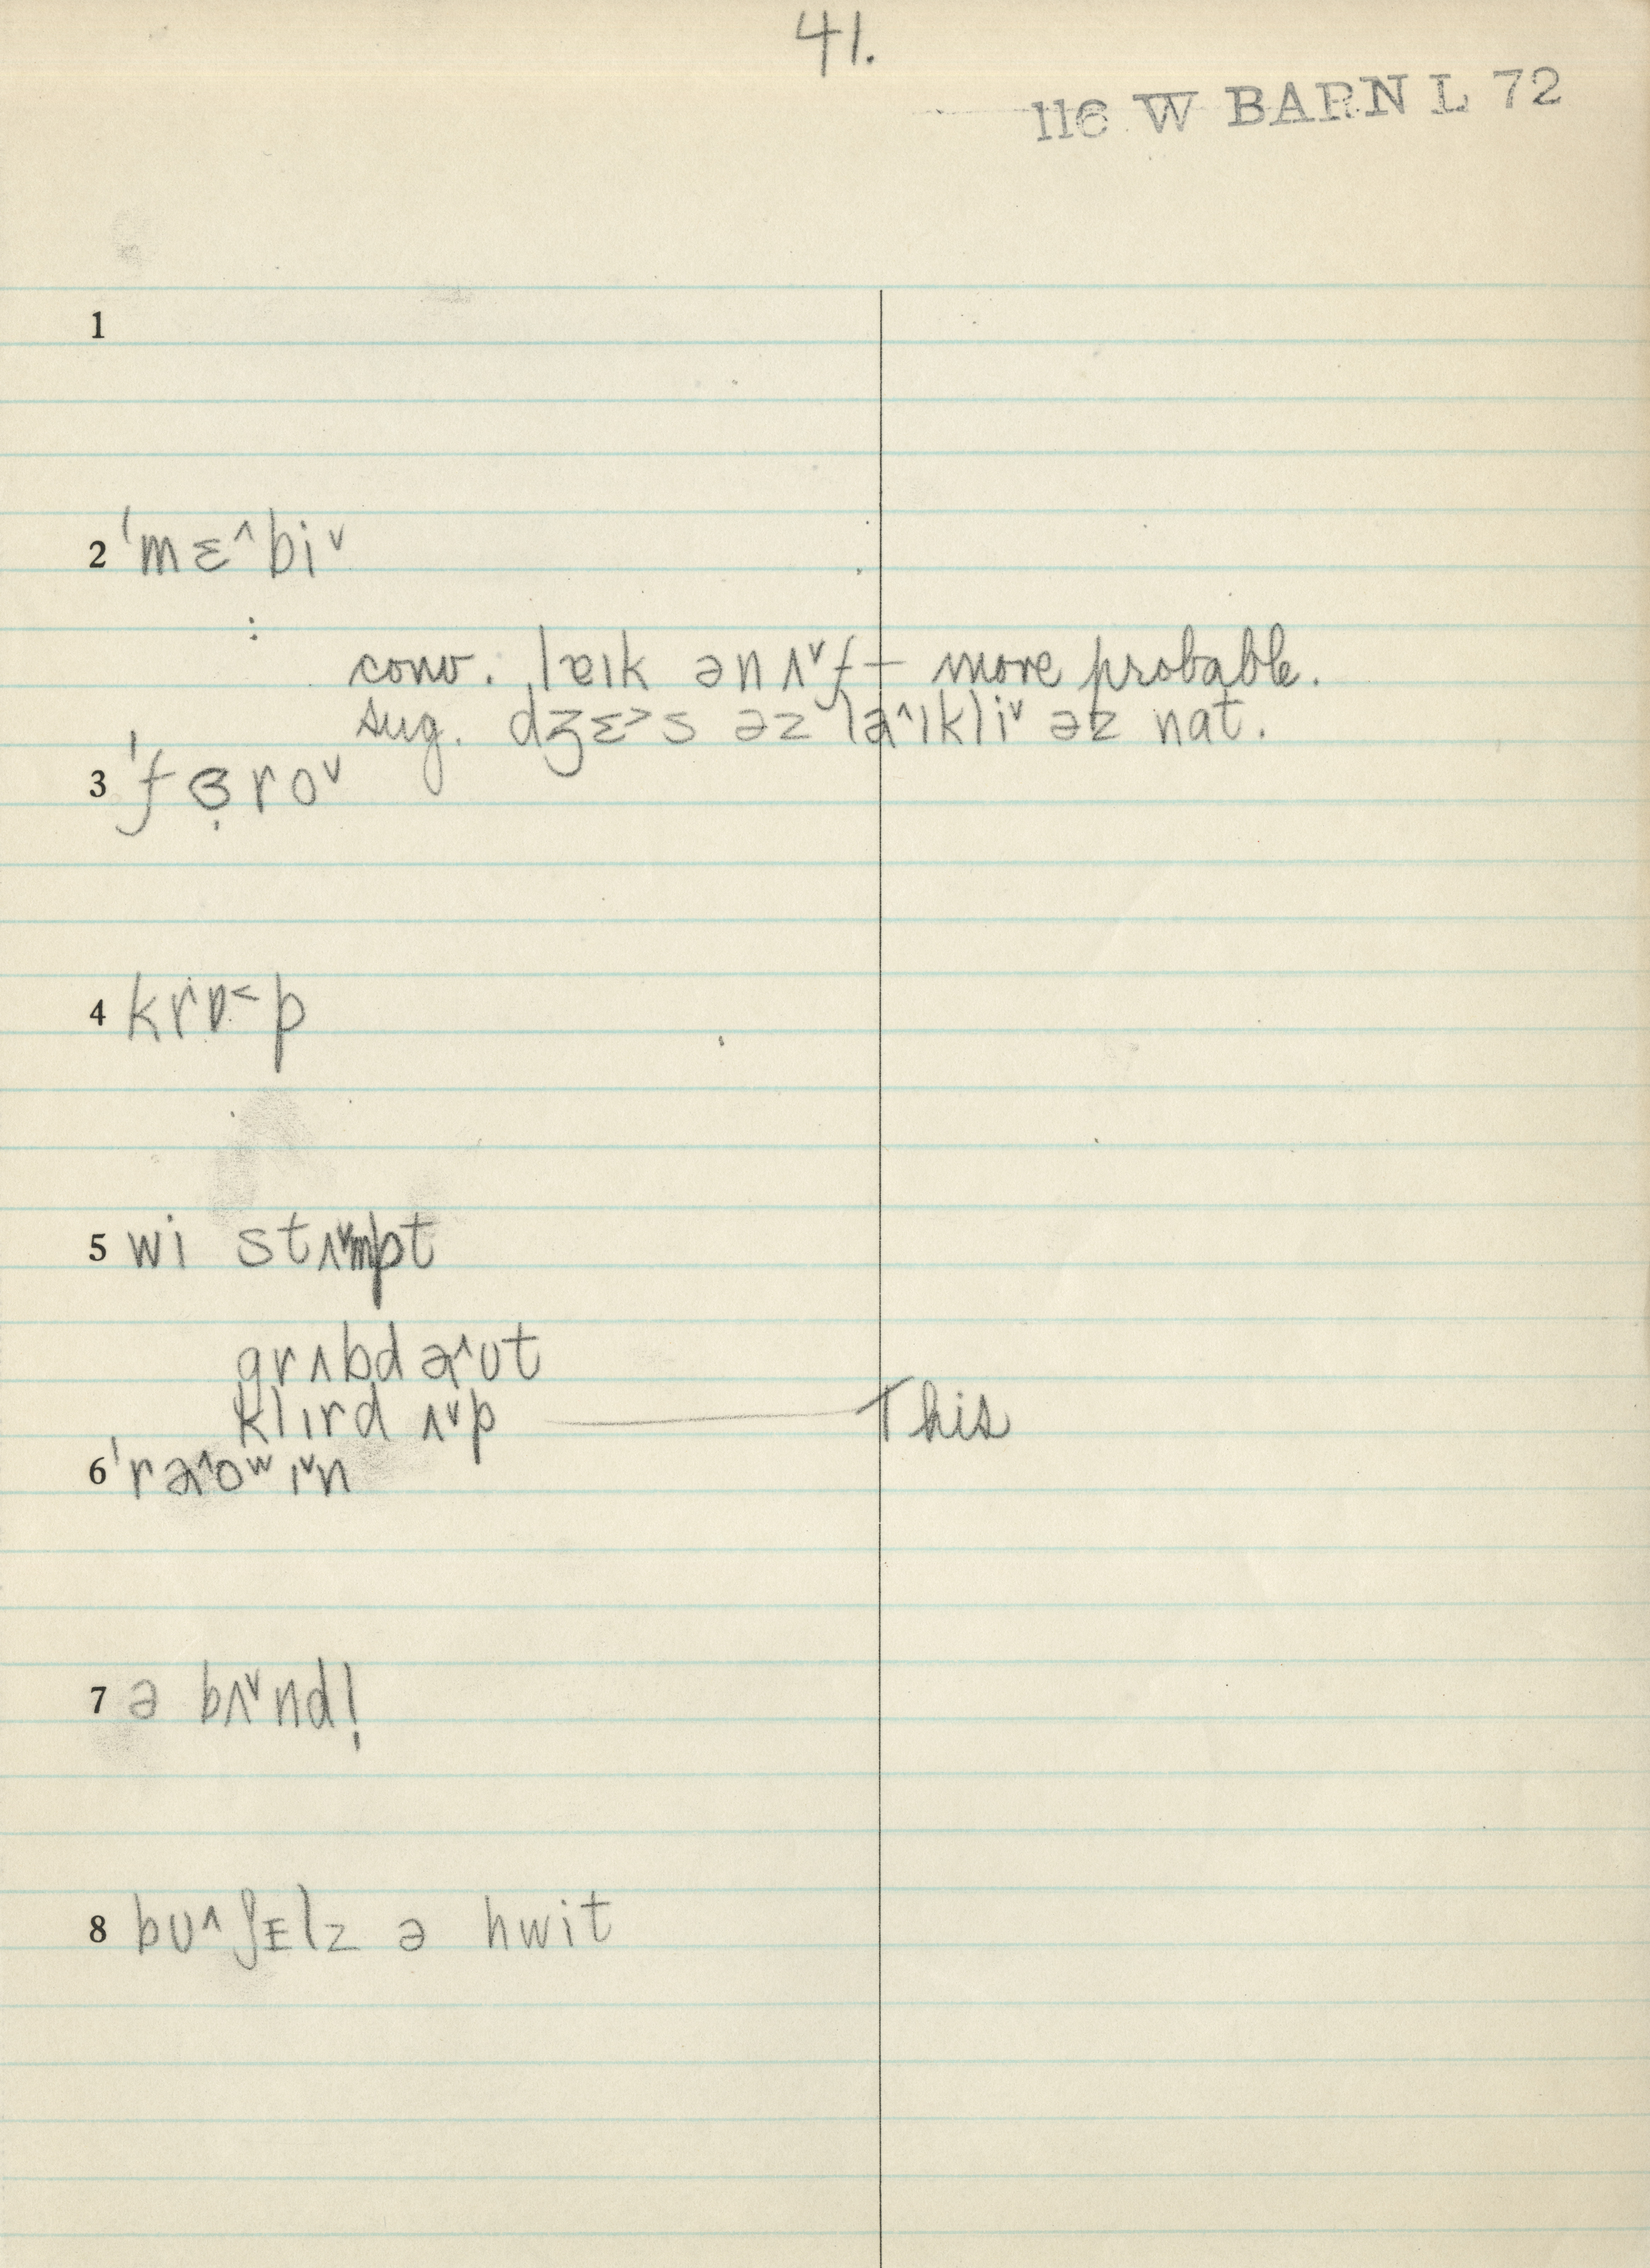 41.
116 W BARN L 72
1
2 ˈmɛ˄bi˅
:
conv. lɐɪk ənʌ˅f — more probable.
sug. dʒɛ˃s əz lə˄ɪkli˅ əz nat.
3 ˈfɞ̣ro˅
4 krɒ˂p
5 wi stʌ˅mpt
grʌbd ə˄ʊt
klɪrd ʌ˅p —— This
6 ˈrə˄oʷɪ˅n
7 ə bʌ˅ndl̩
8 bʊ˄ʃᴇlz ə hwit